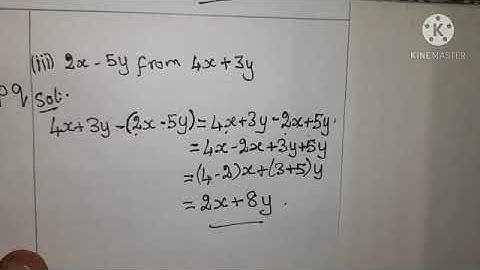 (iii) 2x - 5y from 4x + 3y
pq
Sol:.
4x + 3y - (2x - 5y) = 4x + 3y - 2x + 5y.
= 4x - 2x + 3y + 5y
= (4 - 2)x + (3 + 5)y
= 2x + 8y.
KINEMASTER